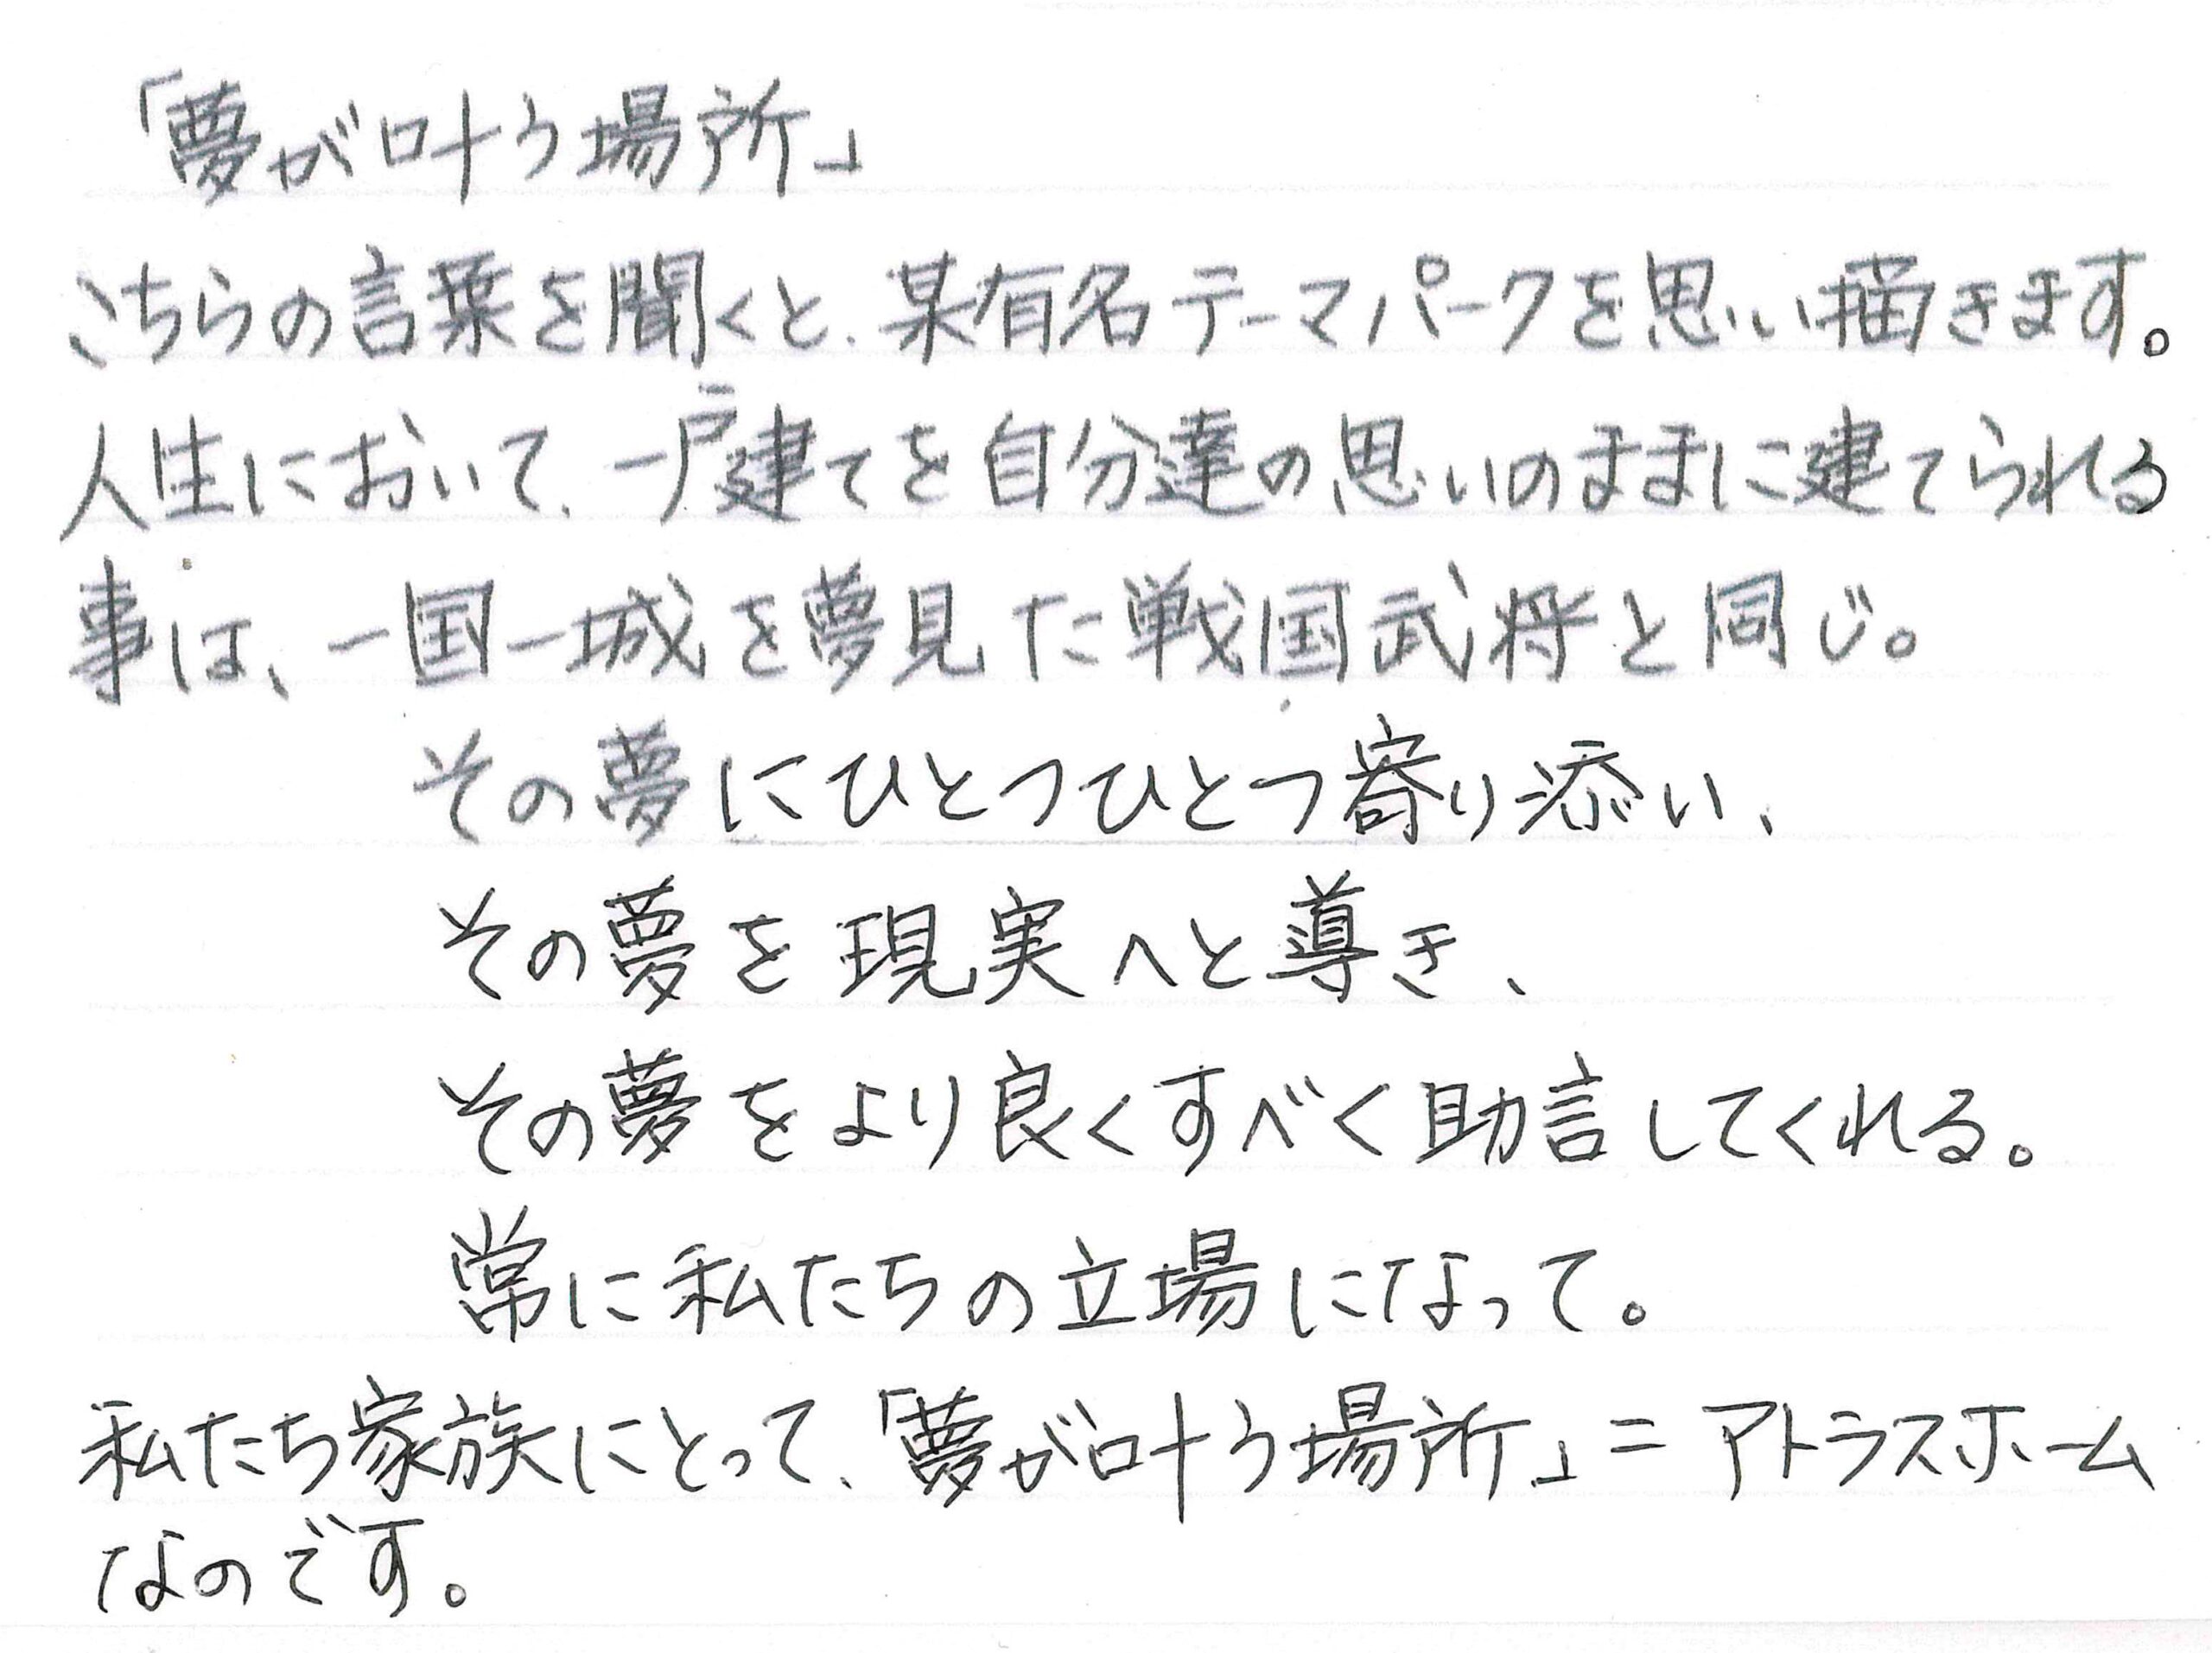 「夢が叶う場所」
こちらの言葉を聞くと、某有名テーマパークを思い描きます。
人生において、一戸建てを自分達の思いのままに建てられる
事は、一国一城を夢見た戦国武将と同じ。
その夢にひとつひとつ寄り添い、
その夢を現実へと導き、
その夢をより良くすべく助言してくれる。
常に私たちの立場になって。
私たち家族にとって、「夢が叶う場所」=アトラスホーム
なのです。